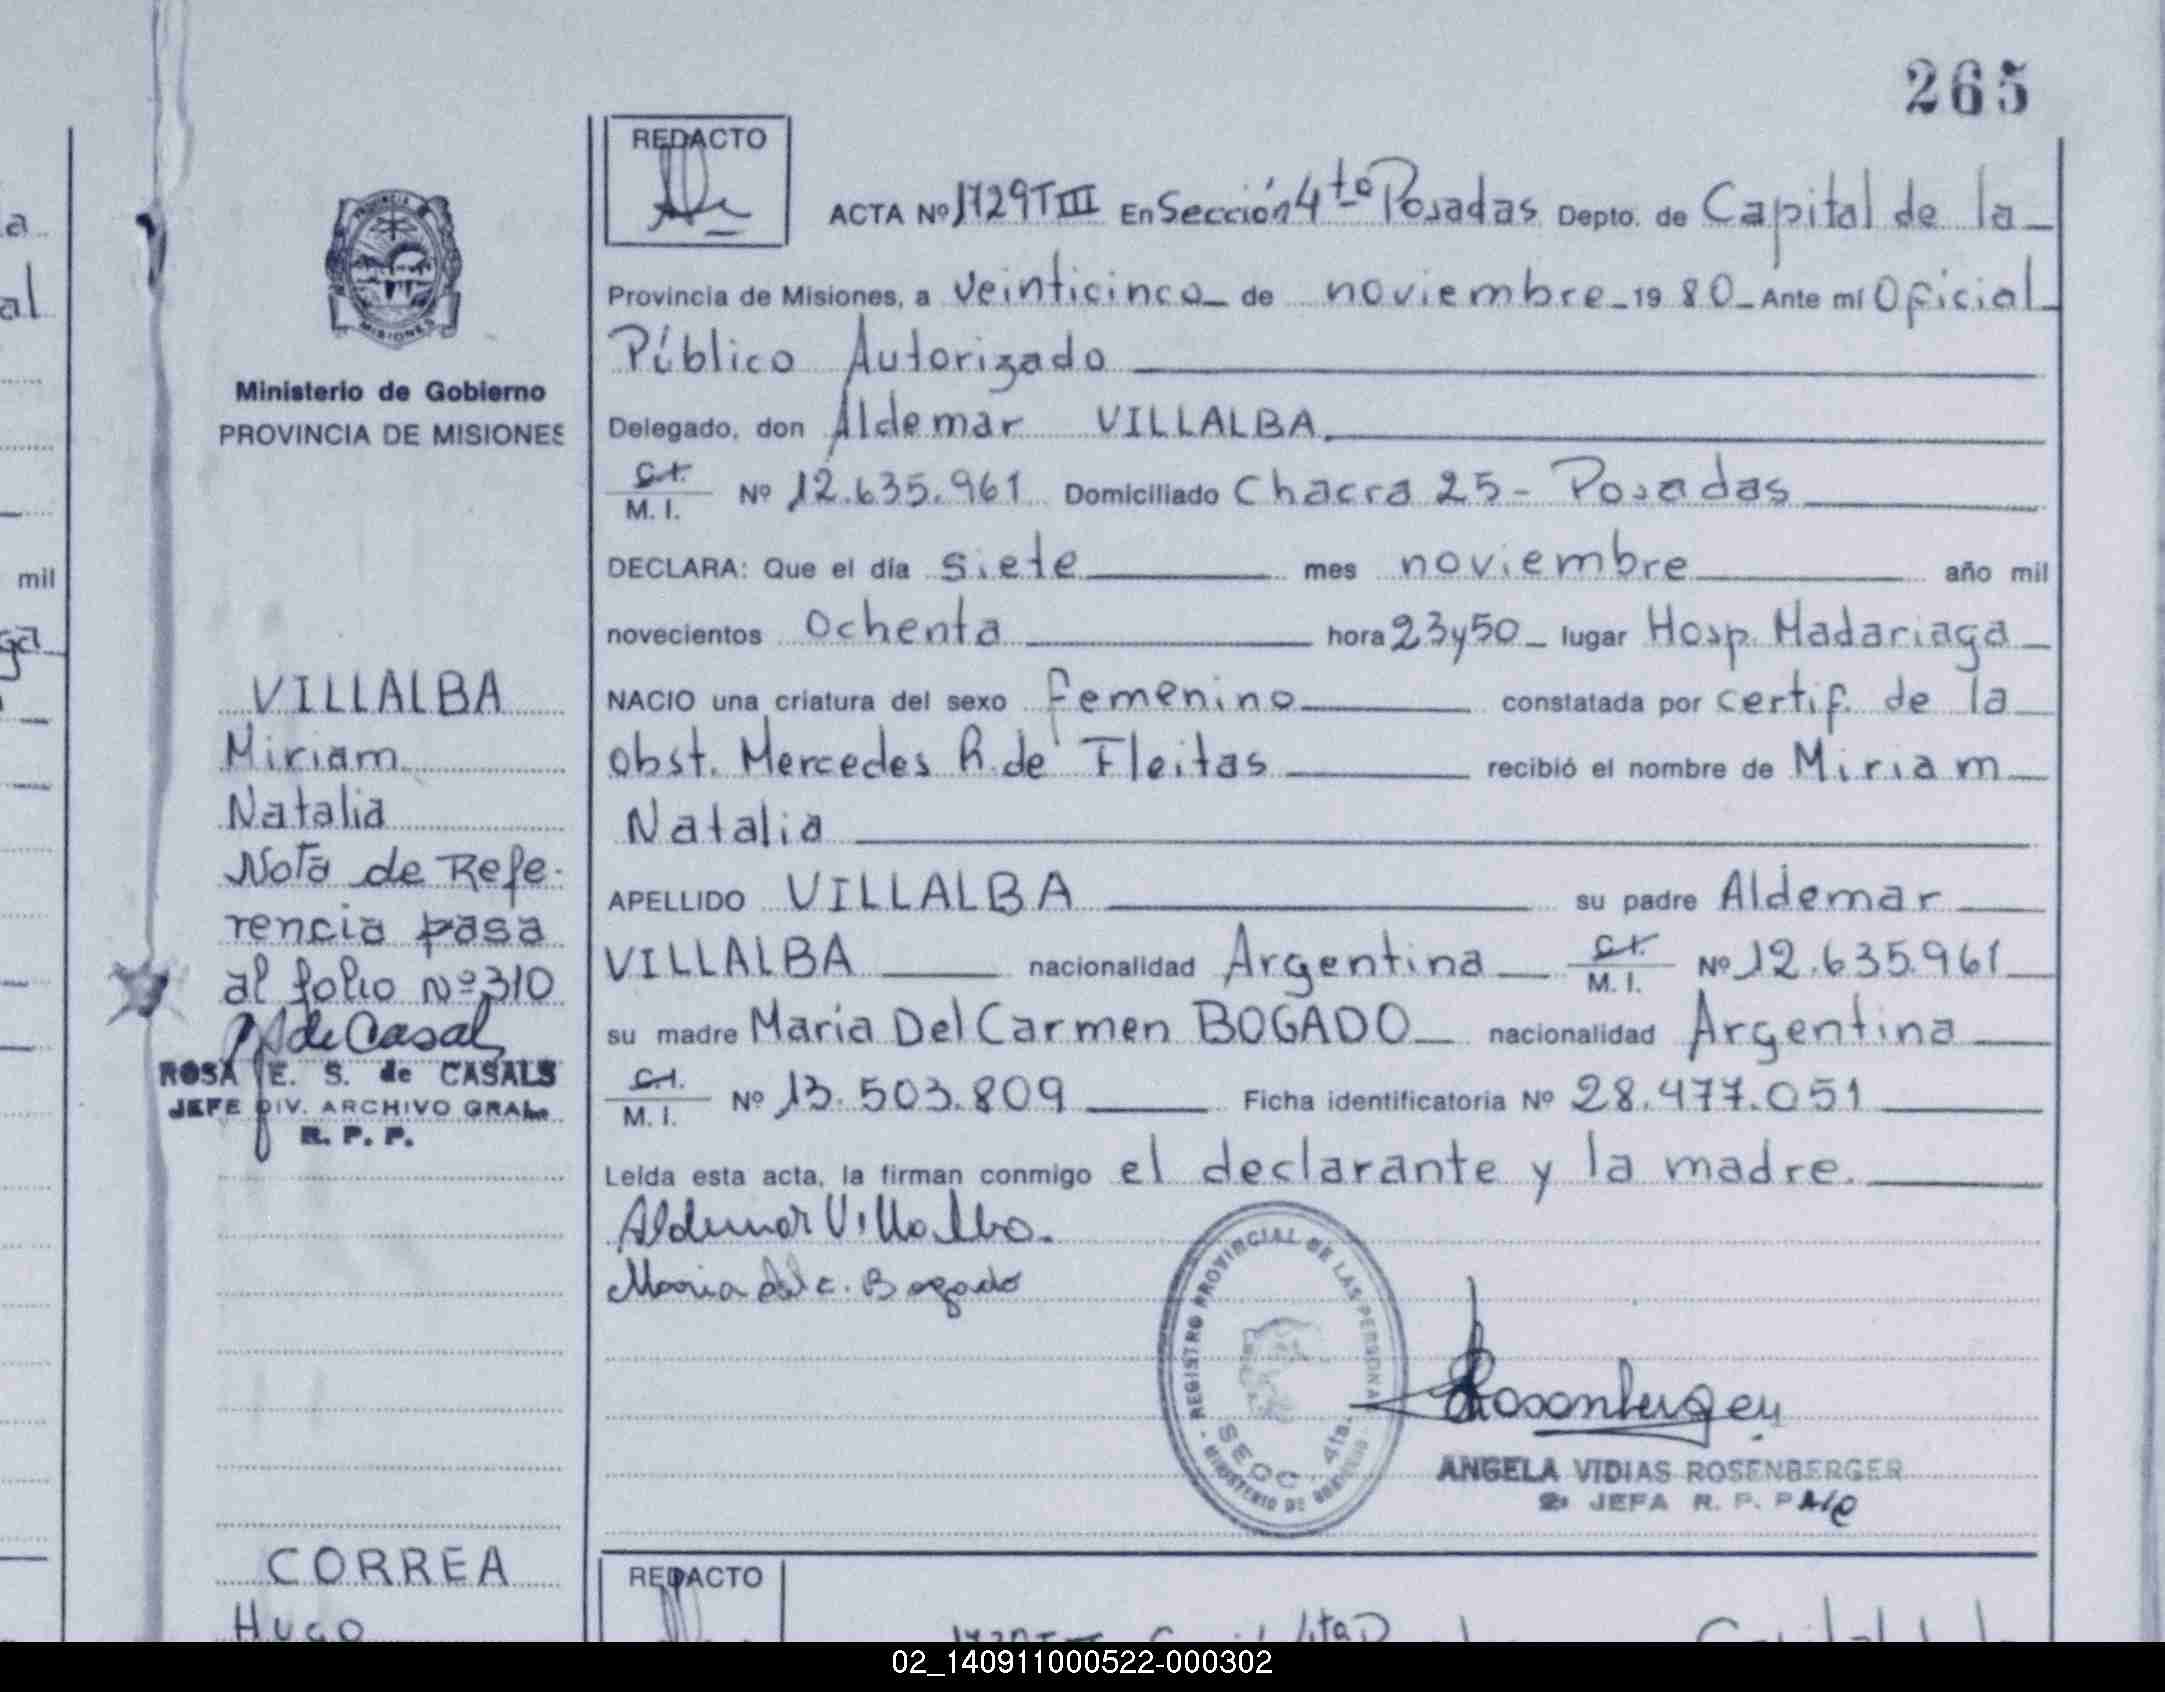 265
REDACTO
ACTA Nº 1729 T III En Sección 4to Posadas Depto. de Capital de la
Provincia de Misiones, a veinticinco de noviembre 19 80 Ante mí Oficial
Público Autorizado
Delegado, don Aldemar VILLALBA
C.I.
M. I. Nº 12.635.961 Domiciliado Chacra 25 - Posadas
DECLARA: Que el día siete mes noviembre año mil
novecientos ochenta hora 23y50 lugar Hosp. Madariaga
NACIO una criatura del sexo femenino constatada por certif. de la
obst. Mercedes R. de Fleitas recibió el nombre de Miriam
Natalia
APELLIDO VILLALBA su padre Aldemar
VILLALBA nacionalidad Argentina C.I. M. I. Nº 12.635.961
su madre Maria Del Carmen BOGADO nacionalidad Argentina
C.I.
M. I. Nº 13.503.809 Ficha identificatoria Nº 28.477.051
Leída esta acta, la firman conmigo el declarante y la madre.
Aldemar Villalba.
Maria del C. Bogado
REGISTRO PROVINCIAL DE LAS PERSONAS
SECC. 4ta.
MINISTERIO DE GOBIERNO
Rosenberger
ANGELA VIDIAS ROSENBERGER
2ª JEFA R. P. P.
PROVINCIA DE
MISIONES
Ministerio de Gobierno
PROVINCIA DE MISIONES
VILLALBA
Miriam
Natalia
Nota de Refe-
rencia pasa
al folio Nº 310
de Casals
ROSA E. S. de CASALS
JEFE DIV. ARCHIVO GRAL.
R. P. P.
CORREA
Hugo
REDACTO
a
al
mil
ga
02_140911000522-000302